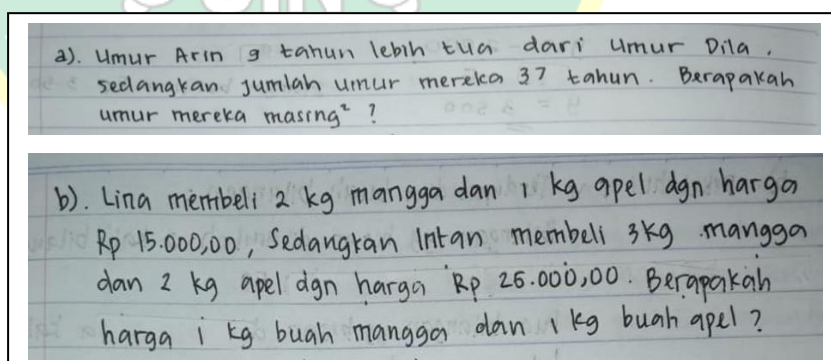 a). Umur Arin 9 tahun lebih tua dari Umur Dila,
sedangkan jumlah umur mereka 37 tahun. Berapakah
umur mereka masing² ?
b). Lina membeli 2 kg mangga dan 1 kg apel dgn harga
Rp 15.000,00, Sedangkan Intan membeli 3kg mangga
dan 2 kg apel dgn harga Rp 26.000,00. Berapakah
harga 1 kg buah mangga dan 1 kg buah apel ?